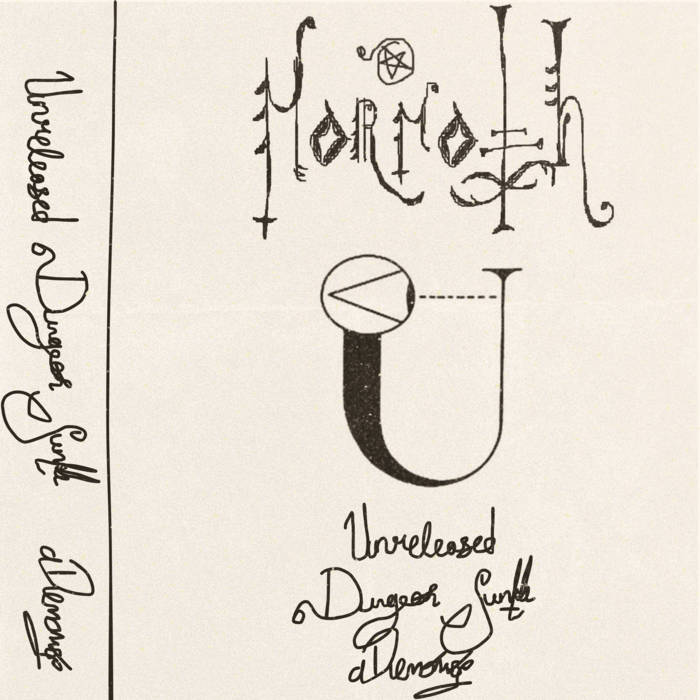 Unreleased Dungeon Synth
MORMOTH
Unreleased
Dungeon Synth